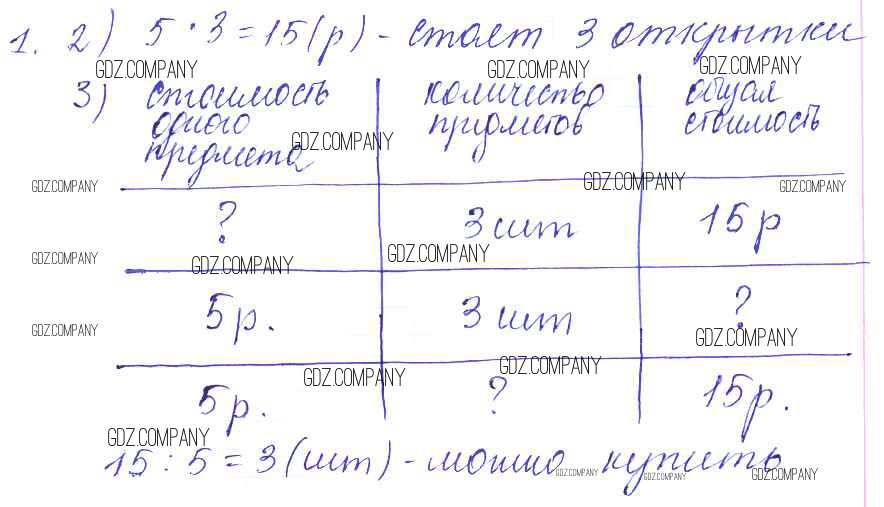 1. 2) 5 · 3 = 15 (р) - стоят 3 открытки
GDZ.COMPANY GDZ.COMPANY GDZ.COMPANY
3) стоимость одного предмета количество предметов общая стоимость
GDZ.COMPANY
GDZ.COMPANY GDZ.COMPANY GDZ.COMPANY
? 3 шт 15 р
GDZ.COMPANY GDZ.COMPANY GDZ.COMPANY
5 р. 3 шт ?
GDZ.COMPANY GDZ.COMPANY
GDZ.COMPANY GDZ.COMPANY
5 р. ? 15 р.
GDZ.COMPANY
15 : 5 = 3 (шт) - можно купить
GDZ.COMPANY GDZ.COMPANY